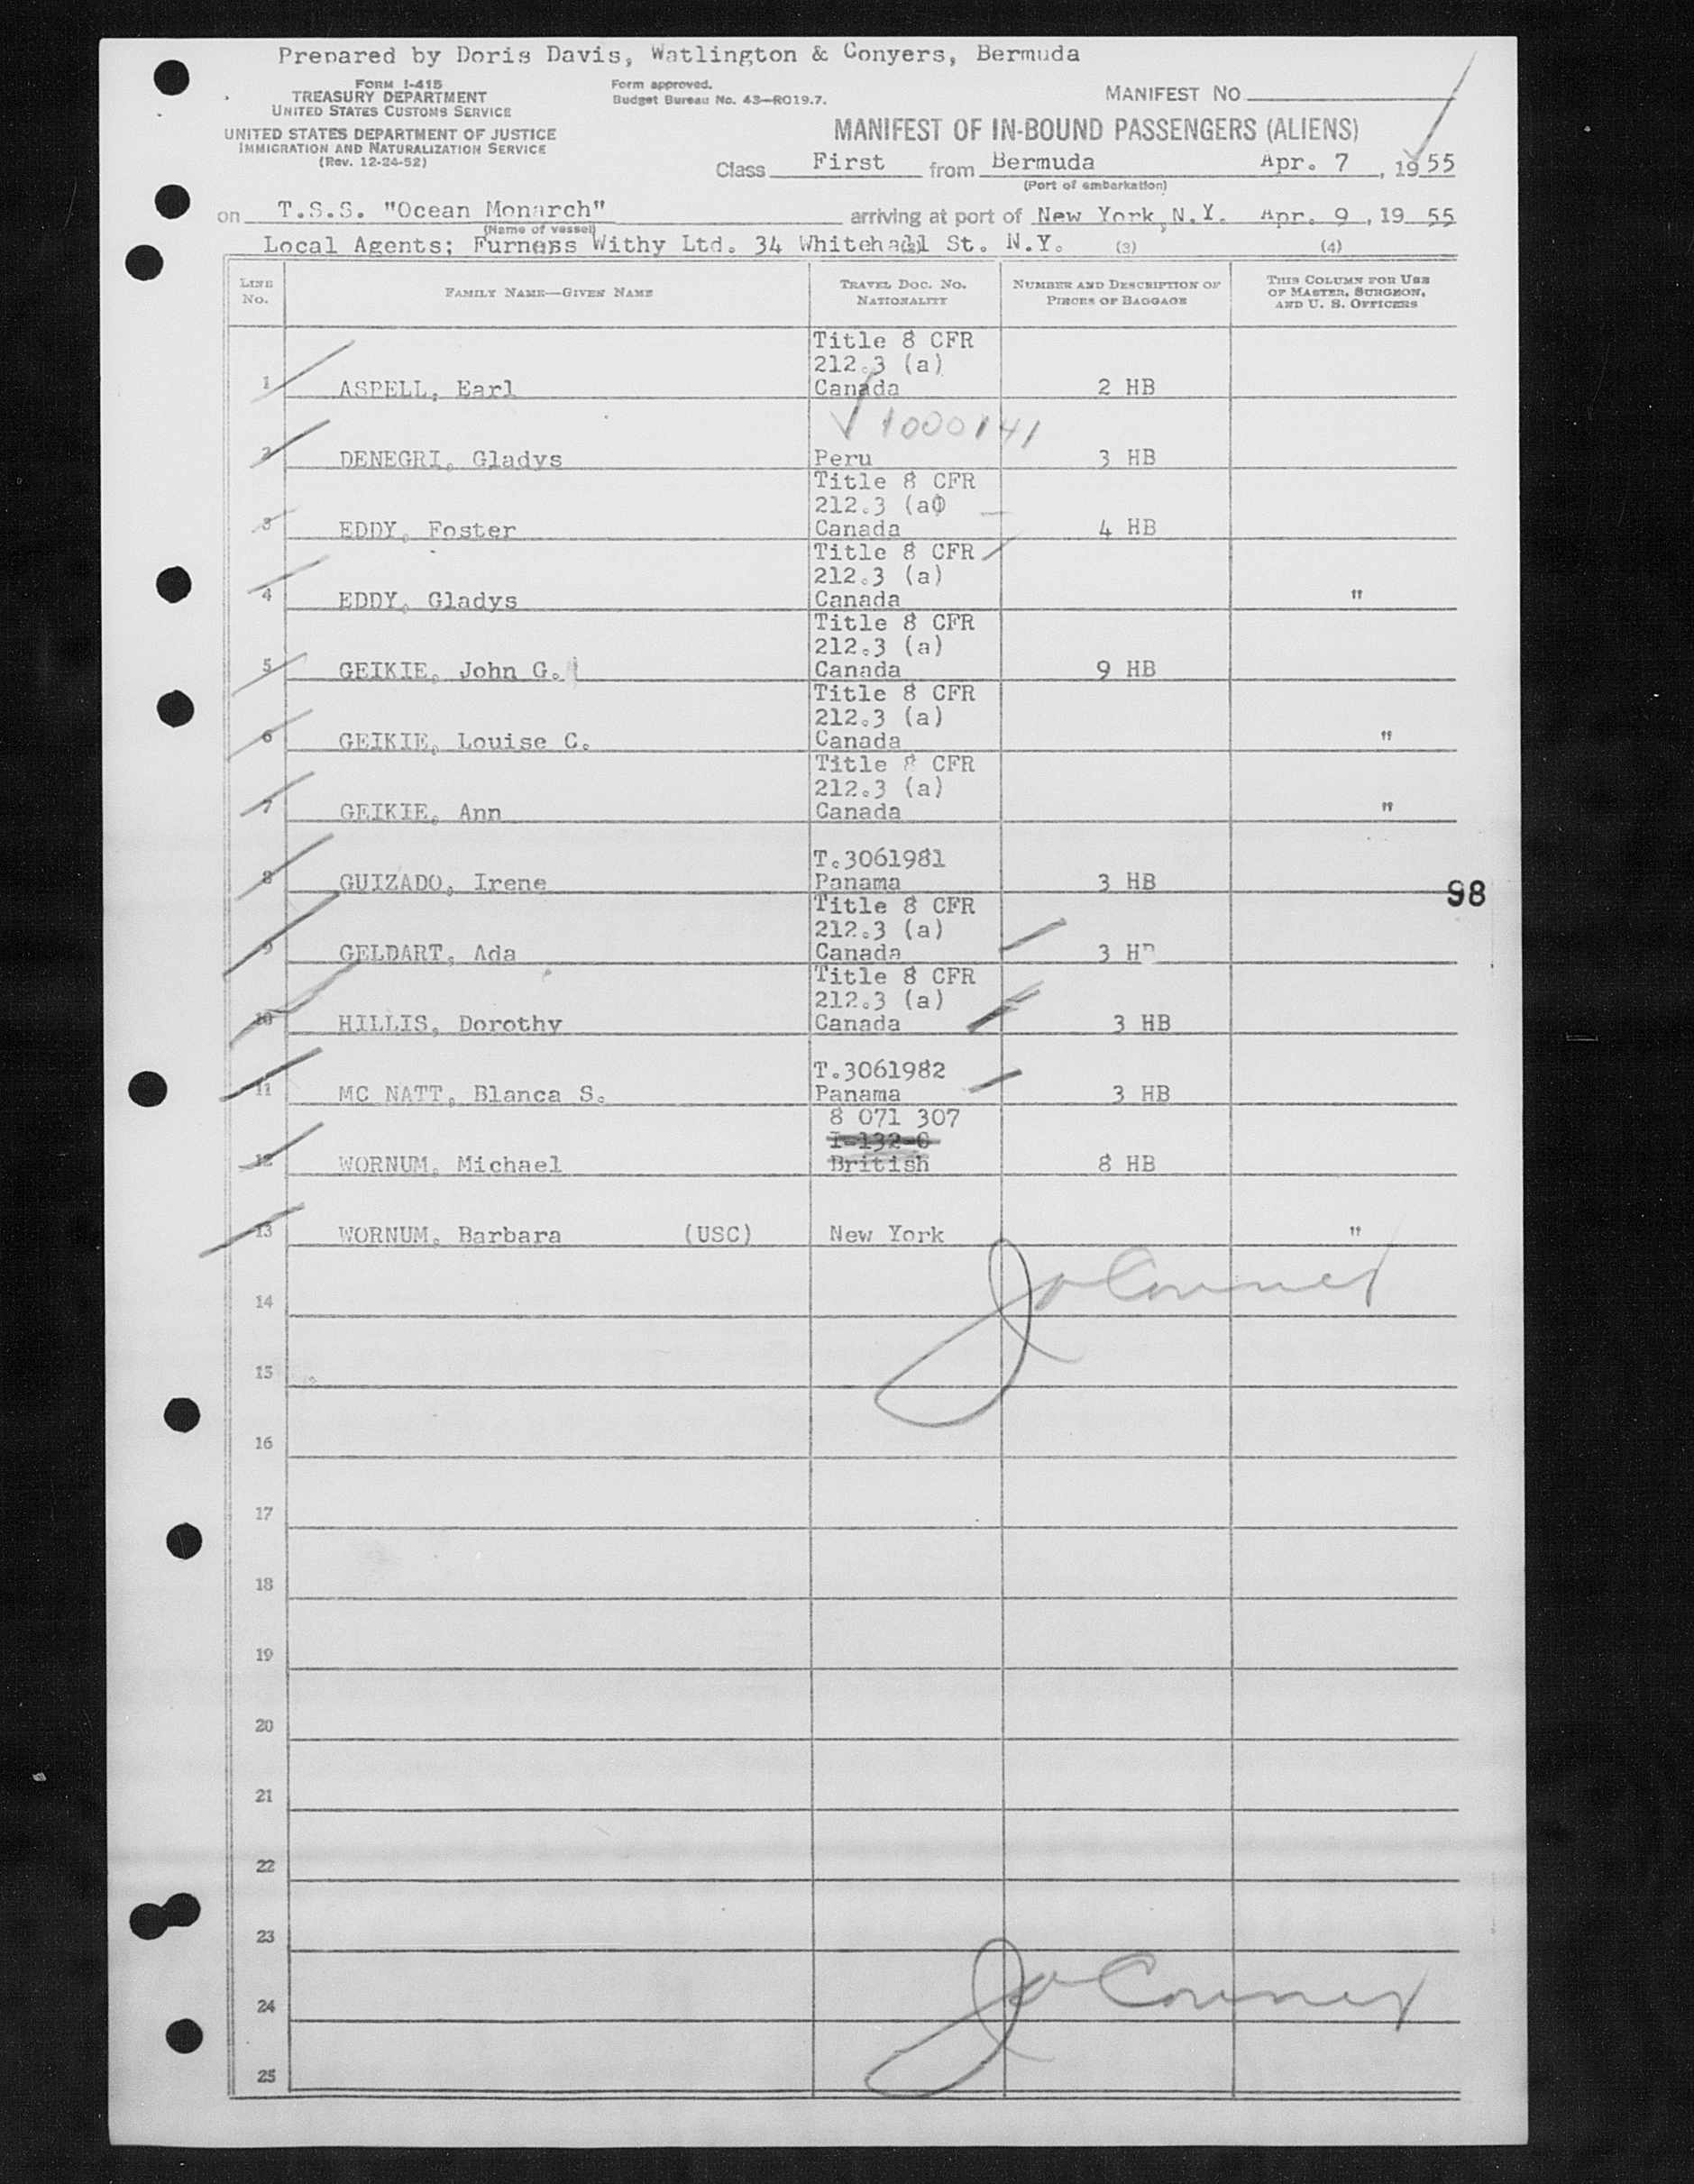 Prepared by Doris Davis, Watlington & Conyers, Bermuda
FORM I-415
TREASURY DEPARTMENT
UNITED STATES CUSTOMS SERVICE
UNITED STATES DEPARTMENT OF JUSTICE
IMMIGRATION AND NATURALIZATION SERVICE
(Rev. 12-24-52)
Form approved.
Budget Bureau No. 43—RO19.7.
MANIFEST NO
MANIFEST OF IN-BOUND PASSENGERS (ALIENS)
Class First from Bermuda Apr. 7, 1955
(Port of embarkation)
on T.S.S. "Ocean Monarch" arriving at port of New York, N.Y. Apr. 9, 1955
(Name of vessel)
Local Agents; Furness Withy Ltd. 34 Whitehall St. N.Y. (3) (4)
LINE No. FAMILY NAME—GIVEN NAME TRAVEL DOC. NO. NATIONALITY NUMBER AND DESCRIPTION OF PIECES OF BAGGAGE THIS COLUMN FOR USE OF MASTER, SURGEON, AND U. S. OFFICERS
Title 8 CFR
212.3 (a)
1 ASPELL, Earl Canada 2 HB
1000141
2 DENEGRI, Gladys Peru 3 HB
Title 8 CFR
212.3 (a)
3 EDDY, Foster Canada 4 HB
Title 8 CFR
212.3 (a)
4 EDDY, Gladys Canada "
Title 8 CFR
212.3 (a)
5 GEIKIE, John G. Canada 9 HB
Title 8 CFR
212.3 (a)
6 GEIKIE, Louise C. Canada "
Title 8 CFR
212.3 (a)
7 GEIKIE, Ann Canada "
T.3061981
8 GUIZADO, Irene Panama 3 HB
98
Title 8 CFR
212.3 (a)
9 GELDART, Ada Canada 3 HB
Title 8 CFR
212.3 (a)
10 HILLIS, Dorothy Canada 3 HB
T.3061982
11 MC NATT, Blanca S. Panama 3 HB
8 071 307
I-132-C
12 WORNUM, Michael British 8 HB
13 WORNUM, Barbara (USC) New York "
14
15
16
17
18
19
20
21
22
23
24
25